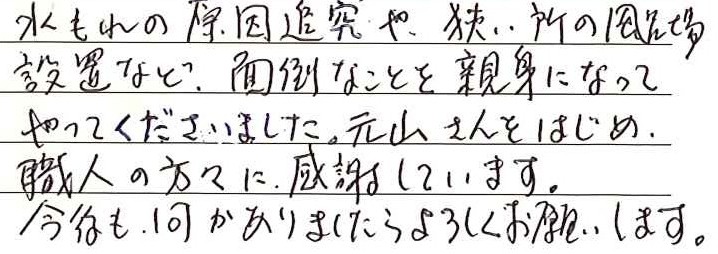 水もれの原因追究や、狭い所の風呂場
設置など、面倒なことを親身になって
やってくださいました。元山さんをはじめ、
職人の方々に、感謝しています。
今後も、何かありましたらよろしくお願いします。